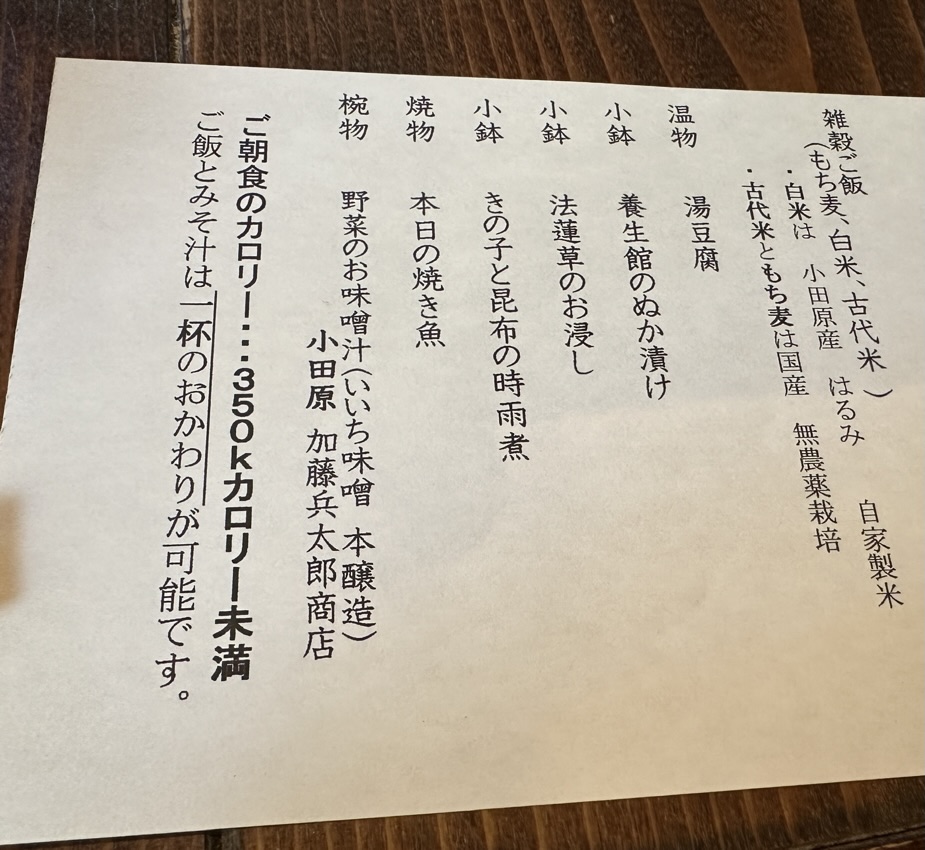 雑穀ご飯
(もち麦、白米、古代米)
・白米は 小田原産 はるみ 自家製米
・古代米ともち麦は国産 無農薬栽培
温物 湯豆腐
小鉢 養生館のぬか漬け
小鉢 法蓮草のお浸し
小鉢 きの子と昆布の時雨煮
焼物 本日の焼き魚
椀物 野菜のお味噌汁(いいち味噌 本醸造)
小田原 加藤兵太郎商店
ご朝食のカロリー・・・350kカロリー未満
ご飯とみそ汁は一杯のおかわりが可能です。